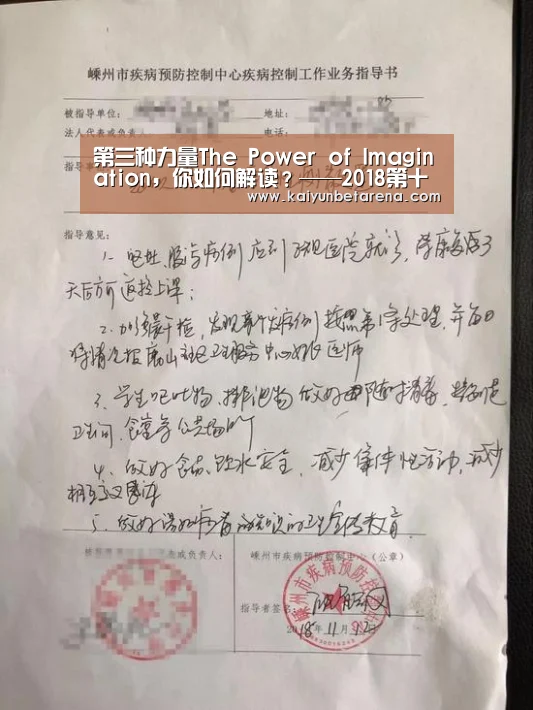 嵊州市疾病预防控制中心疾病控制工作业务指导书
被指导单位:
地址:
法人代表或负责人
电话:
第三种力量The Power of Imagin
ation，你如何解读？——2018第十
www.kaiyunbetarena.com
指导事
指导意见:
1. 呕吐、腹泻病例应到正规医院就诊，待康复后3
天后方可返校上课；
2. 加强晨午检，发现新发病例按照第1条处理，并每日
将情况报 社区卫生服务中心 医师
3. 学生呕吐物、排泄物做好 随时消毒，特别是
卫生间、食堂等公共场所
4. 做好食品、饮水安全，减少集体性活动，减少
相互交叉
5. 做好 病毒 知识的卫生宣传教育.
表或负责人:
嵊州市疾病预防控制中心（公章）
嵊州市疾病预防控制中心
指导者签名:
2018年11月12日